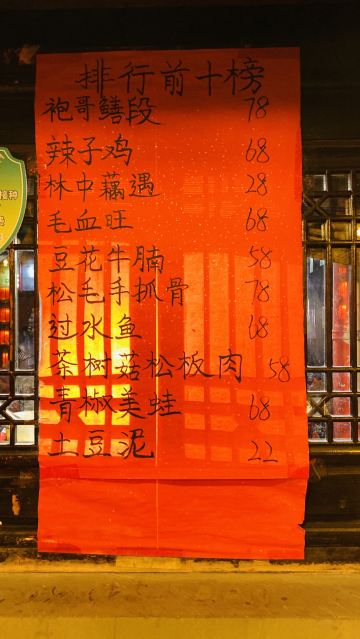 排行前十榜
袍哥鳝段 78
辣子鸡 68
林中藕遇 28
毛血旺 68
豆花牛腩 58
松毛手抓骨 78
过水鱼 68
茶树菇松板肉 58
青椒美蛙 68
土豆泥 22
接种